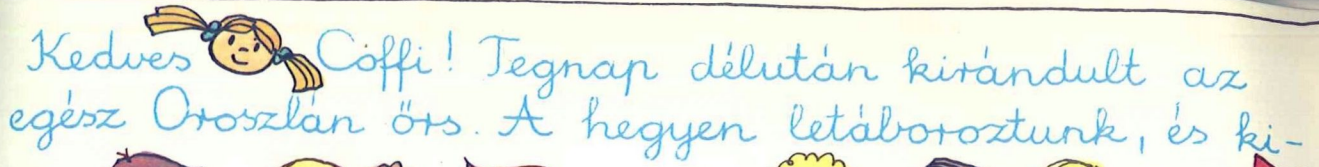 Kedves Cöffi! Tegnap délután kirándult az
egész Oroszlán őrs. A hegyen letáboroztunk, és ki-